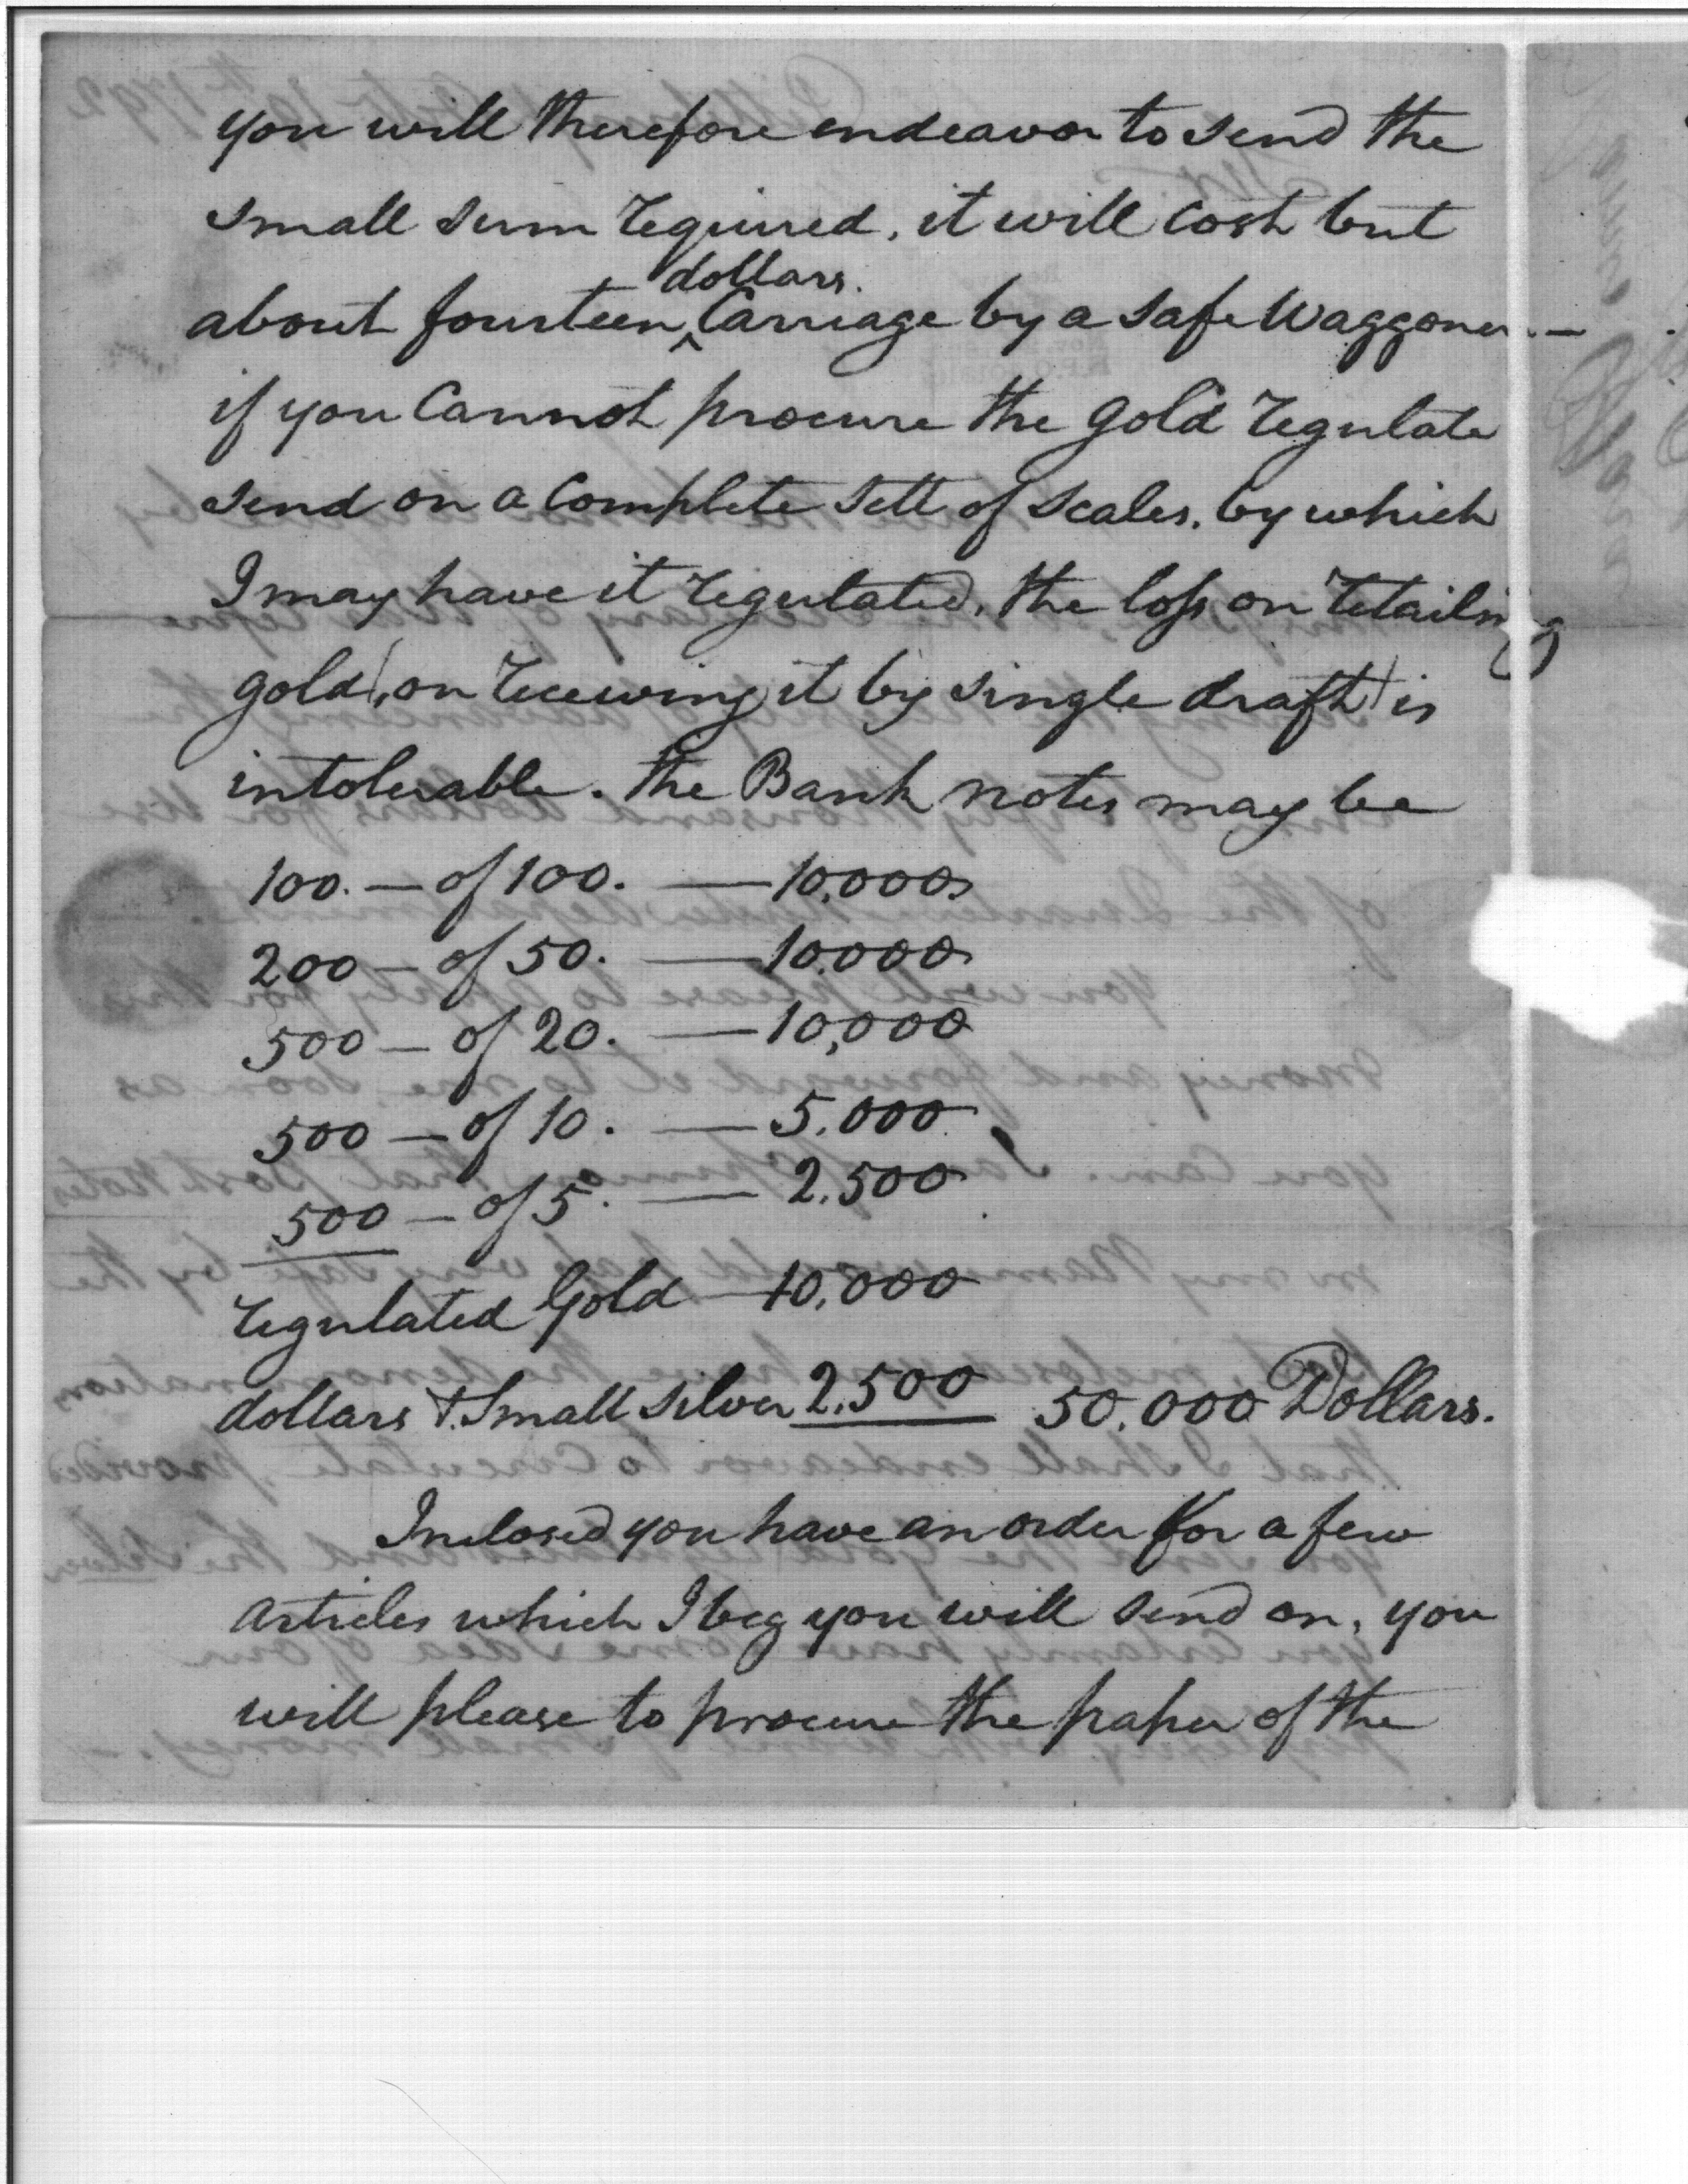 you will therefore endeavor to send the
small sum required, it will cost but
dollars.
about fourteen ^ Carriage by a safe Waggoner. —
if you Cannot procure the gold regulate
send on a Complete sett of scales, by which
I may have it regulated, the loss on retailing
gold (, on receiving it by single draft) is
intolerable. the Bank notes may be
100. — of 100. — 10,000
200 — of 50. — 10,000
500 — of 20. — 10,000
500 — of 10. — 5,000
500 — of 5. — 2,500
regulated Gold — 10,000
dollars & Small silver 2,500 50,000 Dollars.
Inclosed you have an order for a few
articles which I beg you will send on, you
will please to procure the paper of the